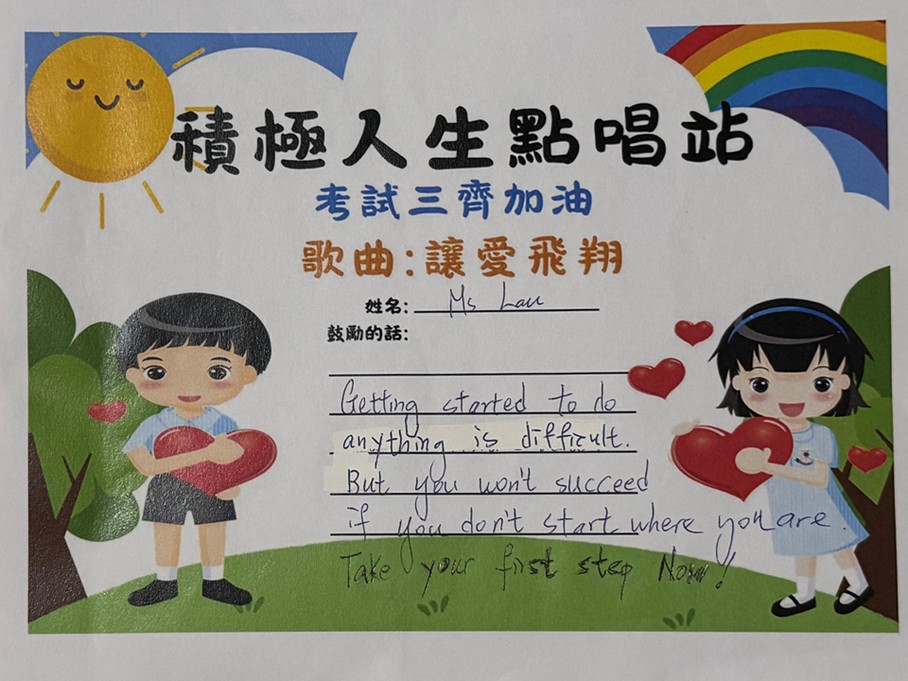 積極人生點唱站
考試三齊加油
歌曲:讓愛飛翔
姓名: Ms Lau
鼓勵的話:
Getting started to do
anything is difficult.
But you won't succeed
if you don't start where you are.
Take your first step Now!